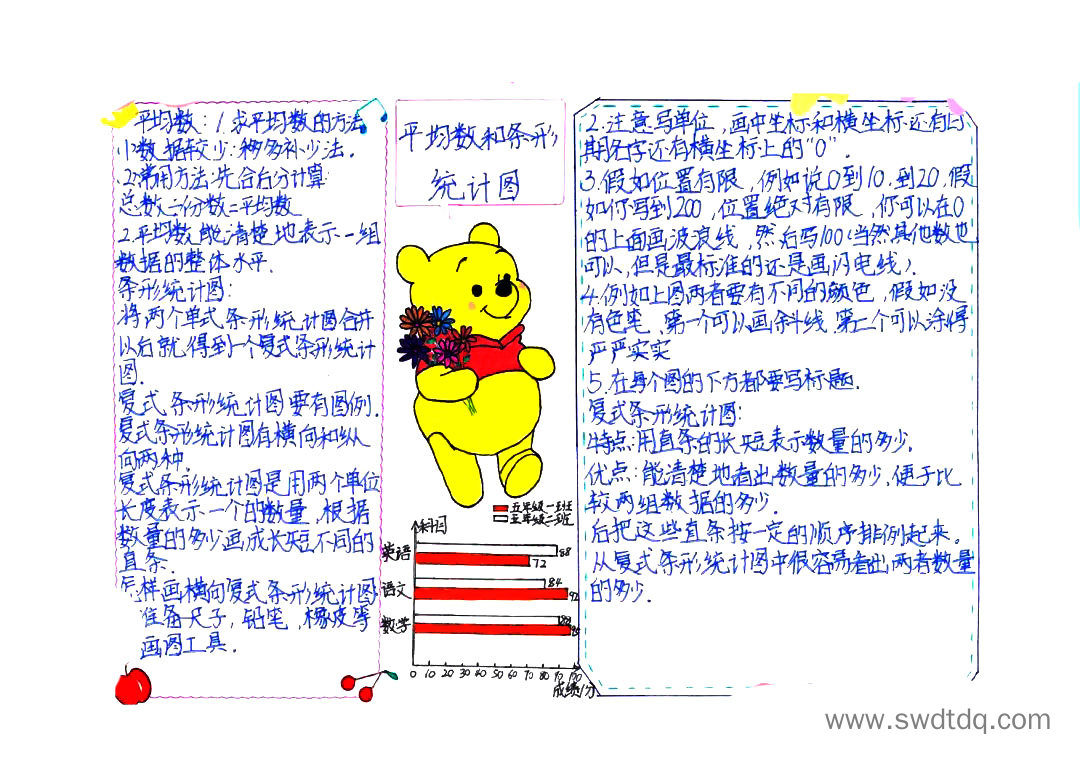 平均数：1.求平均数的方法
小数据较少：移多补少法.
2.常用方法:先合后分计算:
总数÷份数=平均数
2.平均数能清楚地表示一组
数据的整体水平.
条形统计图:
将两个单式条形统计图合并
以后就得到一个复式条形统计
图.
复式条形统计图要有图例.
复式条形统计图有横向和纵
向两种.
复式条形统计图是用两个单位
长度表示一个的数量,根据
数量的多少画成长短不同的
直条.
怎样画横向复式条形统计图:
准备尺子,铅笔,橡皮等
画图工具.
平均数和条形
统计图
五年级一班
五年级二班
科目
英语
88
72
语文
84
92
数学
0 10 20 30 40 50 60 70 80 90 100
成绩/分
2.注意写单位,画中坐标和横坐标还有日
期名字还有横坐标上的"0".
3.假如位置有限,例如说0到10.到20,假
如何写到200,位置绝对有限,你可以在0
的上面画波浪线,然后写100(当然其他数也
可以,但是最标准的还是画闪电线).
4.例如上图两者要有不同的颜色,假如没
有色笔,第一个可以画斜线,第二个可以涂得
严严实实
5.在每个图的下方都要写标题.
复式条形统计图:
特点:用直条的长短表示数量的多少.
优点:能清楚地看出数量的多少,便于比
较两组数据的多少.
后把这些直条按一定的顺序排列起来。
从复式条形统计图中很容易看出两者数量
的多少.
www.swdtdq.com